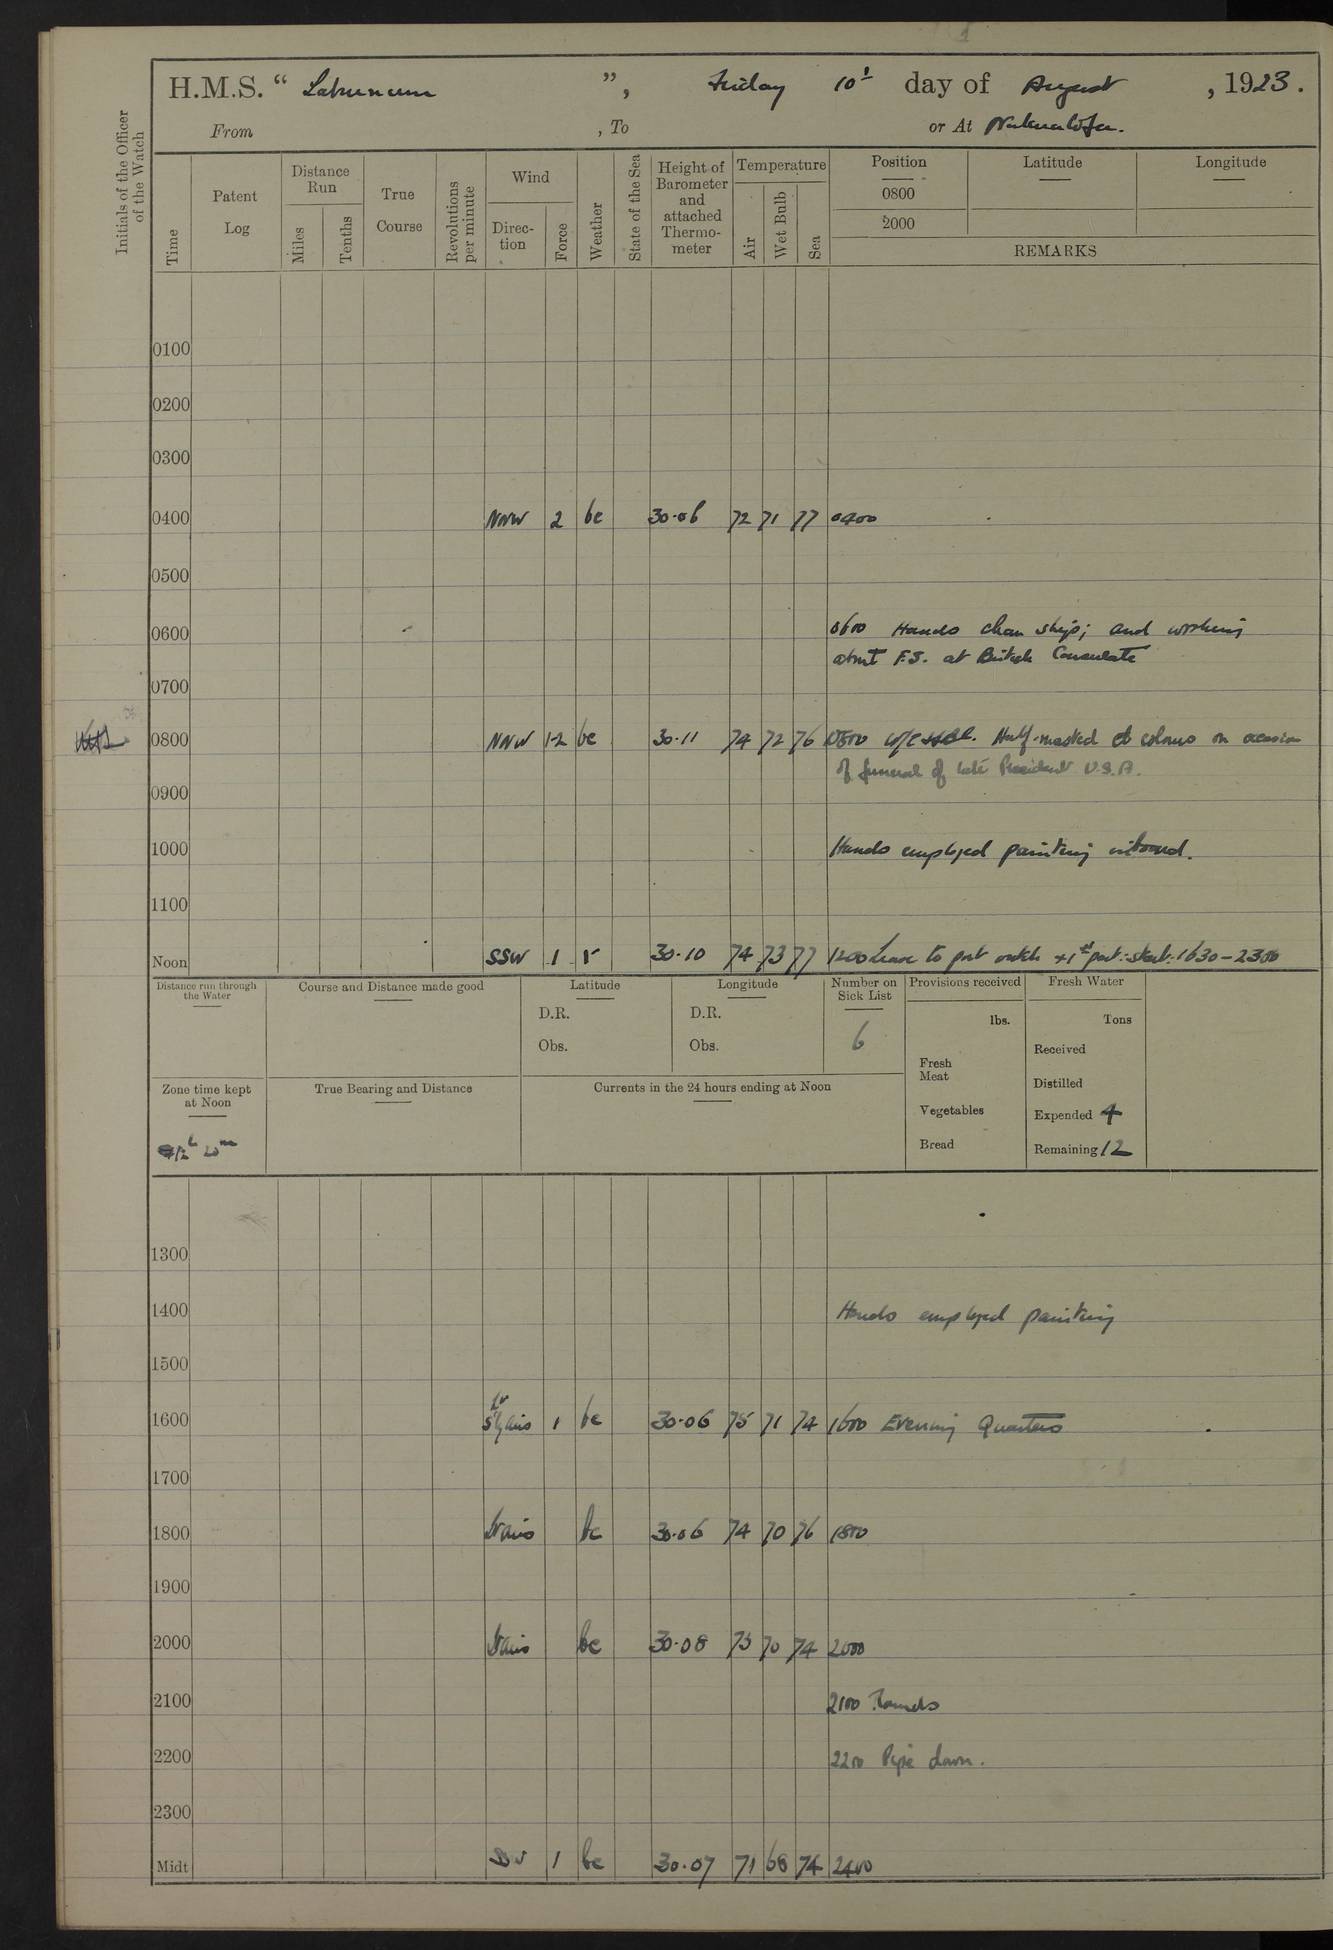 H.M.S. “ Laburnum ”, Friday 10th day of August, 1923.
From , To or At Nukualofa.
Initials of the Officer of the Watch
Time
Patent Log
Distance Run
Miles
Tenths
True Course
Revolutions per minute
Wind
Direction
Force
Weather
State of the Sea
Height of Barometer and attached Thermometer
Temperature
Air
Wet Bulb
Sea
Position Latitude Longitude
0800
2000
REMARKS
0100
0200
0300
0400 NNW 2 bc 30.06 72 71 77 0400
0500
0600 0600 Hands clean ship; and working
about F.S. at British Consulate
0700
0800 NNW 1-2 bc 30.11 74 72 76 0800 Half-masted colours on occasion
of funeral of late President U.S.A.
0900
1000 Hands employed painting inboard.
1100
Noon SSW 1 r 30.10 74 73 77 1200 Leave to port watch + 1st part: 1630-2300
Distance run through the Water
Course and Distance made good
Latitude
D.R.
Obs.
Longitude
D.R.
Obs.
Number on Sick List
6
Provisions received
lbs.
Fresh Meat
Vegetables
Bread
Fresh Water
Tons
Received
Distilled
Expended 4
Remaining 12
Zone time kept at Noon
12h 20m
True Bearing and Distance
Currents in the 24 hours ending at Noon
1300
1400 Hands employed painting
1500
1600 1 bc 30.06 75 71 74 1600 Evening Quarters
1700
1800 bc 30.06 74 70 76 1800
1900
2000 bc 30.08 73 70 74 2000
2100 2100 Rounds
2200 2200 Pipe down.
2300
Midt 1 bc 30.07 71 68 74 2400